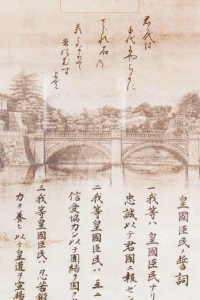 君が代は
千代に
さざれ石の
皇國臣民ノ誓詞
一、我等ハ皇國臣民ナリ
忠誠以テ君國ニ報セン
二、我等皇國臣民ハ互ニ
信愛協力シ以テ團結ヲ固ク
三、我等皇國臣民ハ忍苦鍛
力ヲ養ヒ以テ皇道ヲ宣揚